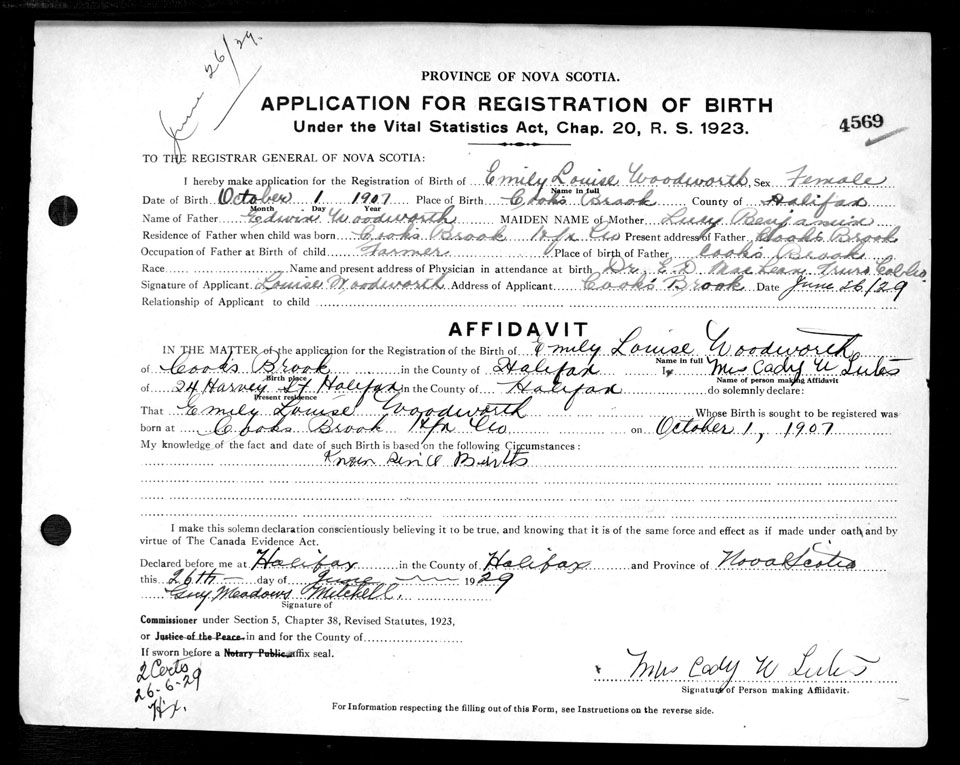 June 26/29.
PROVINCE OF NOVA SCOTIA.
APPLICATION FOR REGISTRATION OF BIRTH
Under the Vital Statistics Act, Chap. 20, R. S. 1923.
4569
TO THE REGISTRAR GENERAL OF NOVA SCOTIA:
I hereby make application for the Registration of Birth of Emily Louise Woodworth, Sex Female
Name in full
Date of Birth October 1 1907 Place of Birth Cooks Brook County of Halifax
Month Day Year
Name of Father Edwin Woodworth MAIDEN NAME of Mother Lucy Benjamin
Residence of Father when child was born Cooks Brook Hfx Co Present address of Father Cooks Brook
Occupation of Father at Birth of child Farmer Place of birth of Father Cooks Brook
Race Name and present address of Physician in attendance at birth Dr. E. D. MacLean, Truro Col Co.
Signature of Applicant Louise Woodworth Address of Applicant Cooks Brook Date June 26/29
Relationship of Applicant to child
AFFIDAVIT
IN THE MATTER of the application for the Registration of the Birth of Emily Louise Woodworth
Name in full
of Cooks Brook in the County of Halifax I, Mrs Cady W
Birth place Name of person making Affidavit
of 24 Harvey St Halifax in the County of Halifax do solemnly declare:
Present residence
That Emily Louise Woodworth Whose Birth is sought to be registered was
born at Cooks Brook Hfx Co on October 1, 1907
My knowledge of the fact and date of such Birth is based on the following Circumstances:
Births
I make this solemn declaration conscientiously believing it to be true, and knowing that it is of the same force and effect as if made under oath, and by
virtue of The Canada Evidence Act.
Declared before me at Halifax in the County of Halifax and Province of Nova Scotia
this 26th day of June 1929
Guy Meadows Mitchell.
Signature of
Commissioner under Section 5, Chapter 38, Revised Statutes, 1923,
or Justice of the Peace in and for the County of
If sworn before a Notary Public affix seal.
2 Certs
26-6-29
Hx.
Mrs Cady W
Signature of Person making Affidavit.
For Information respecting the filling out of this Form, see Instructions on the reverse side.